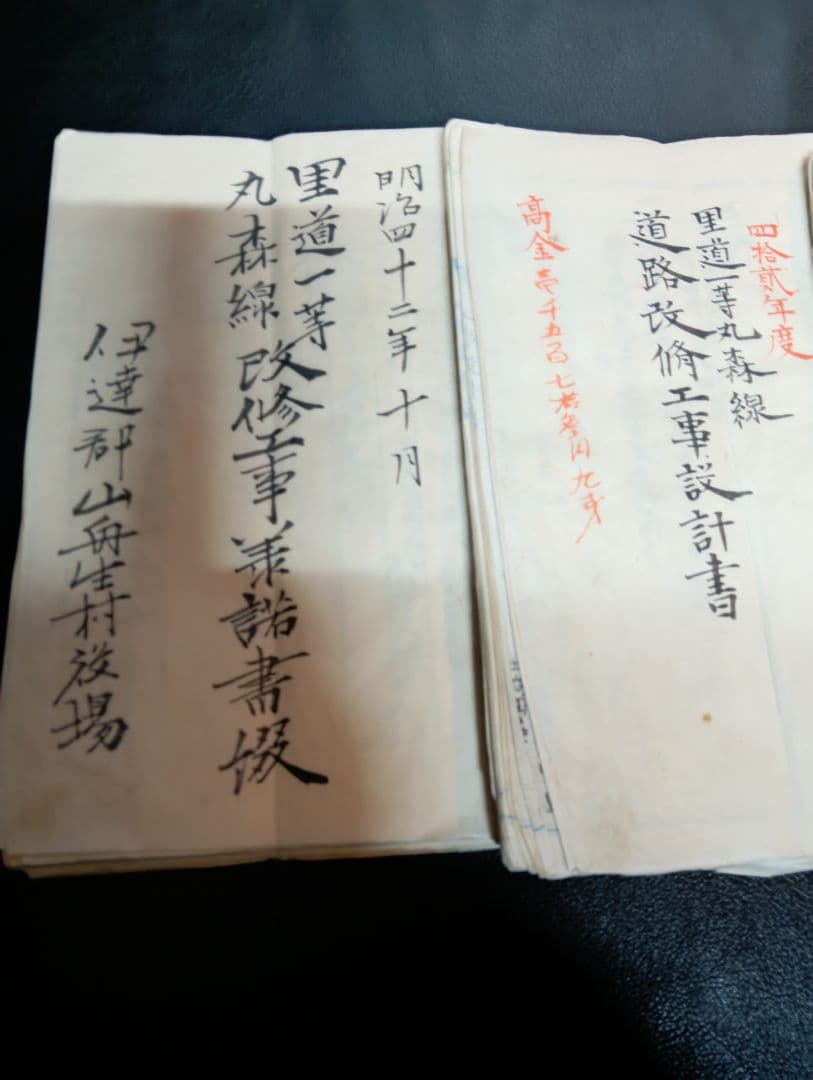 四拾貳年度
里道一等丸森線
道路改脩工事設計書
高金壱千五百七拾
円九銭
明治四十二年十月
里道一等
丸森線
改修工事承諾書綴
伊達郡山舟生村役場